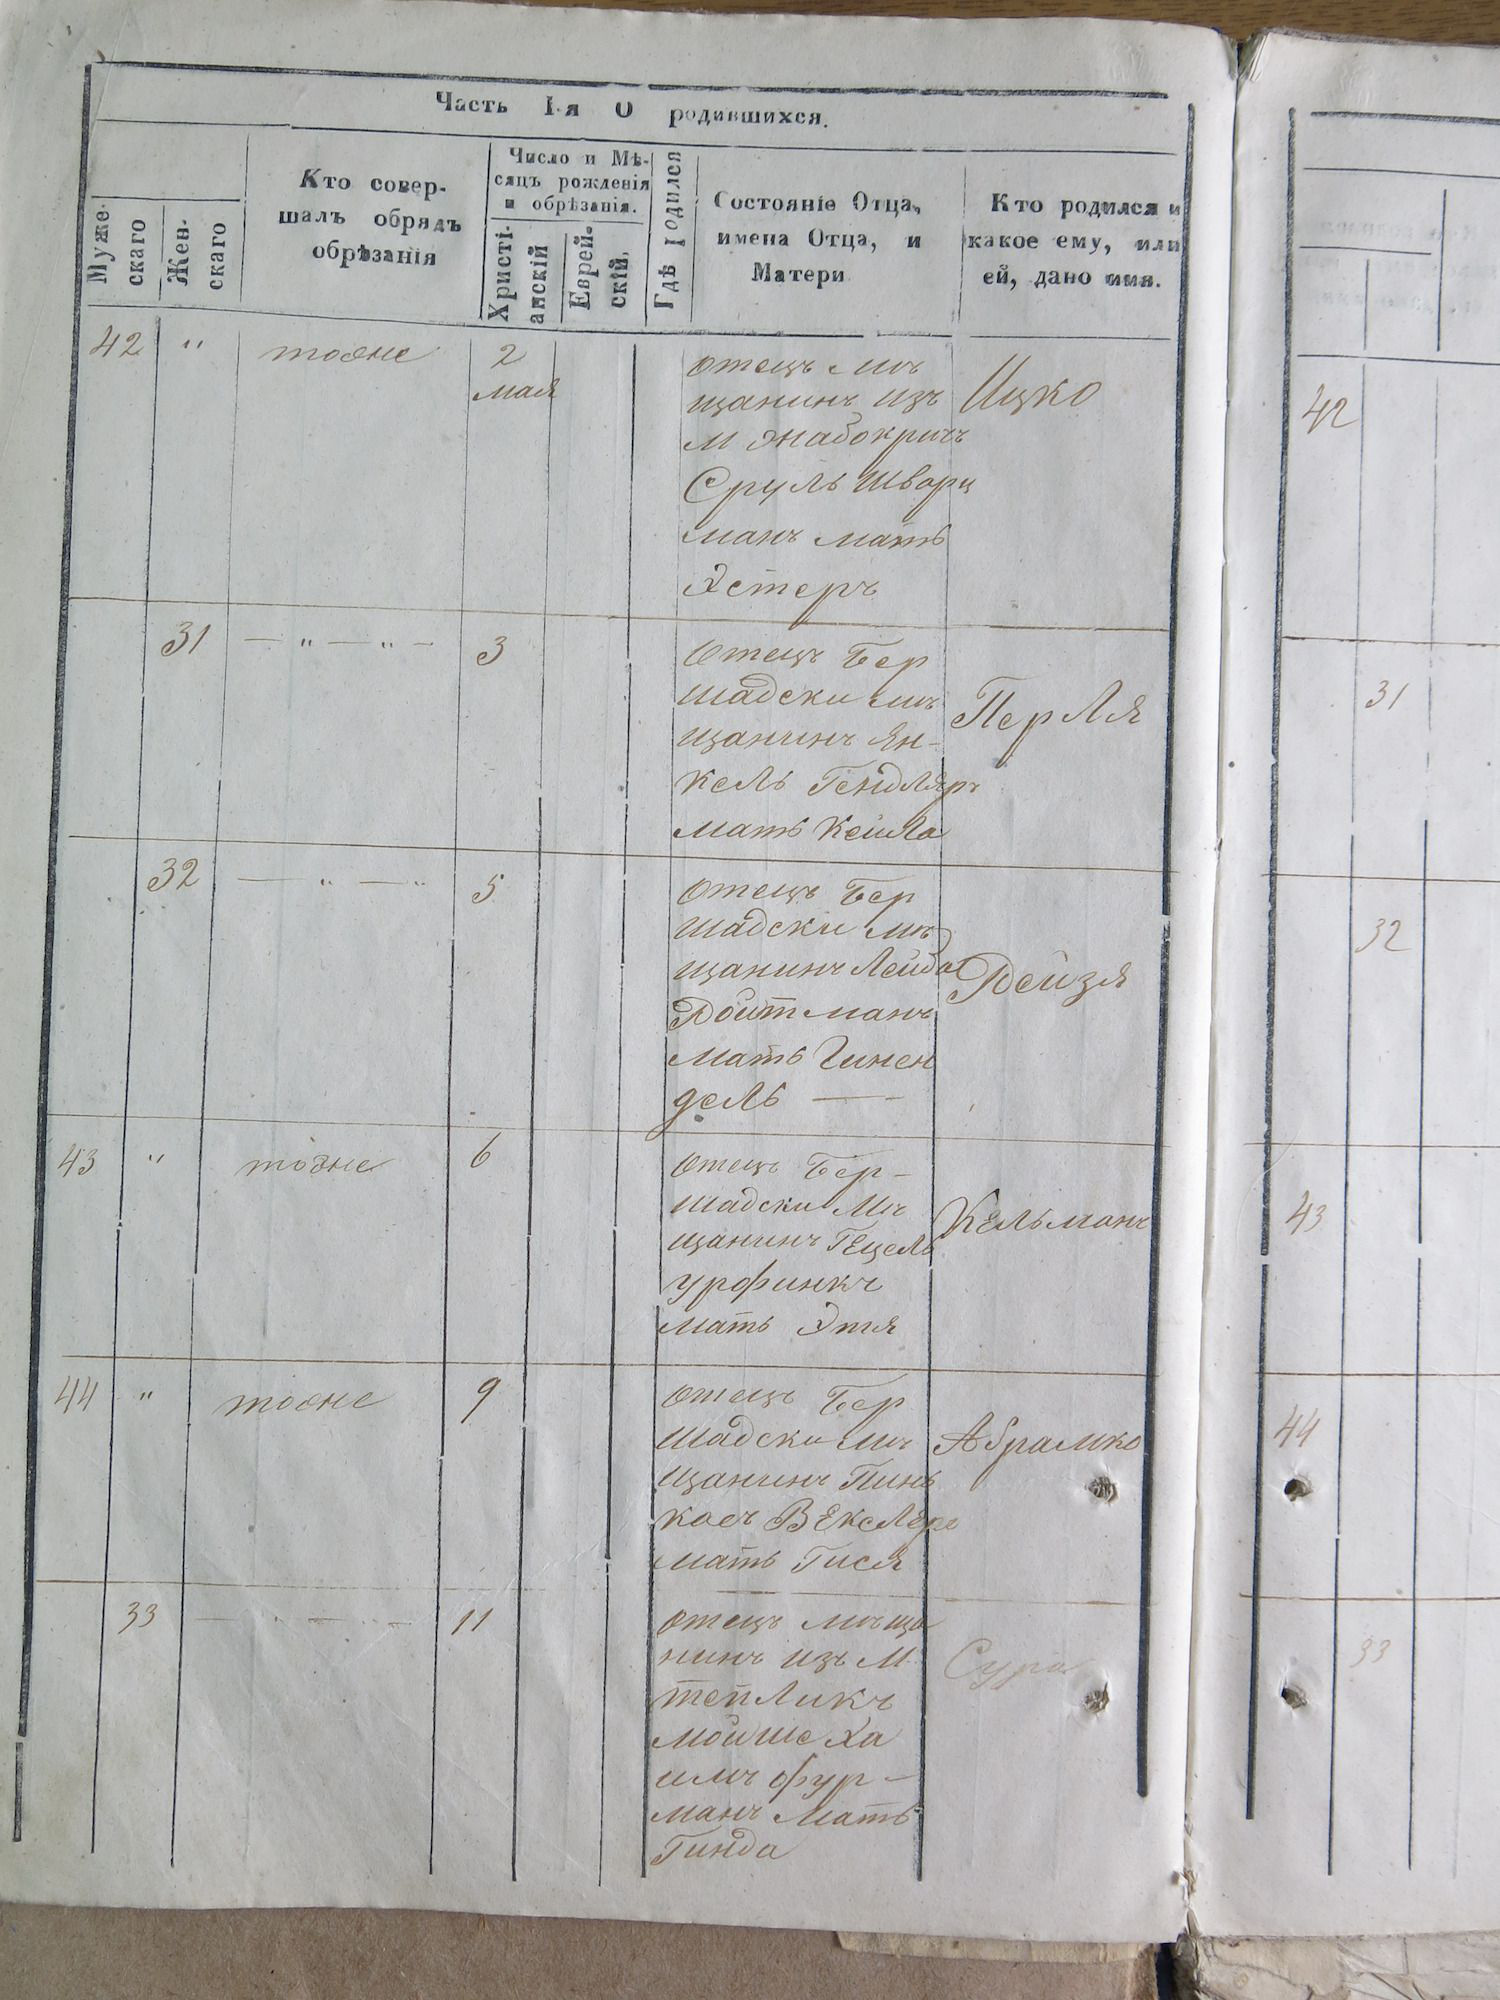 Часть I-я О родившихся.
Муже-
скаго
Жен-
скаго
Кто совер-
шалъ обрядъ
обрѣзанія
Число и Мѣ-
сяцъ рожденія
и обрѣзанія.
Христі-
анскій
Еврей-
скій.
Гдѣ родился
Состояніе Отца,
имена Отца, и
Матери
Кто родился и
какое ему, или
ей, дано имя.
42 " тоже 2
мая
отецъ мѣ
щанинъ изъ
м жабокричъ
Сруль Шварц
манъ мать
Эстеръ
Ицко
31 — " — " — 3
Отецъ Бер
шадски мѣ
щанинъ Ян-
кель Гендляръ
мать Кейла
Перля
32 — " — " 5
Отецъ Бер
шадски мѣ
щанинъ Лейба
Ройтманъ
мать Гинен
дель —
Рейзя
43 " тоже 6
Отецъ Бер-
шадски мѣ
щанинъ Гецель
Урфинкъ
мать Этя
Кельманъ
44 " тоже 9
отецъ Бер
шадски мѣ
щанинъ Пинь
касъ Векслеръ
мать Гися
Абрамко
33 — " — " — 11
отецъ мѣща
нинъ изъ м
тепликъ
Мойше Ха
имъ Фур-
манъ мать
Гинда
Сура
42
31
32
43
44
33